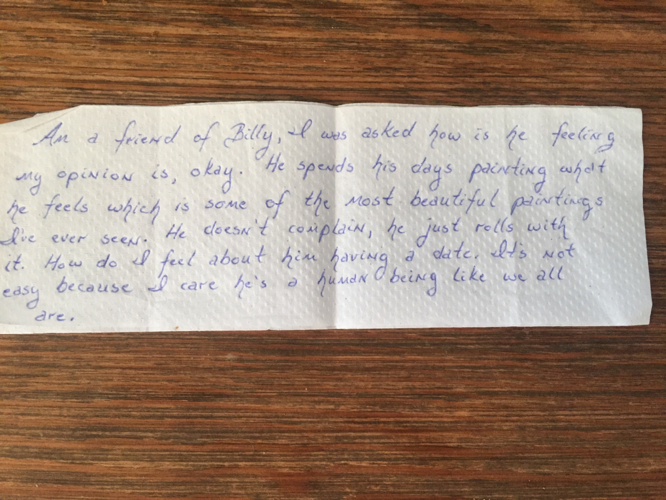 Am a friend of Billy, I was asked how is he feeling
my opinion is, okay. He spends his days painting what
he feels which is some of the most beautiful paintings
I've ever seen. He doesn't complain, he just rolls with
it. How do I feel about him having a date. It's not
easy because I care he's a human being like we all
are.